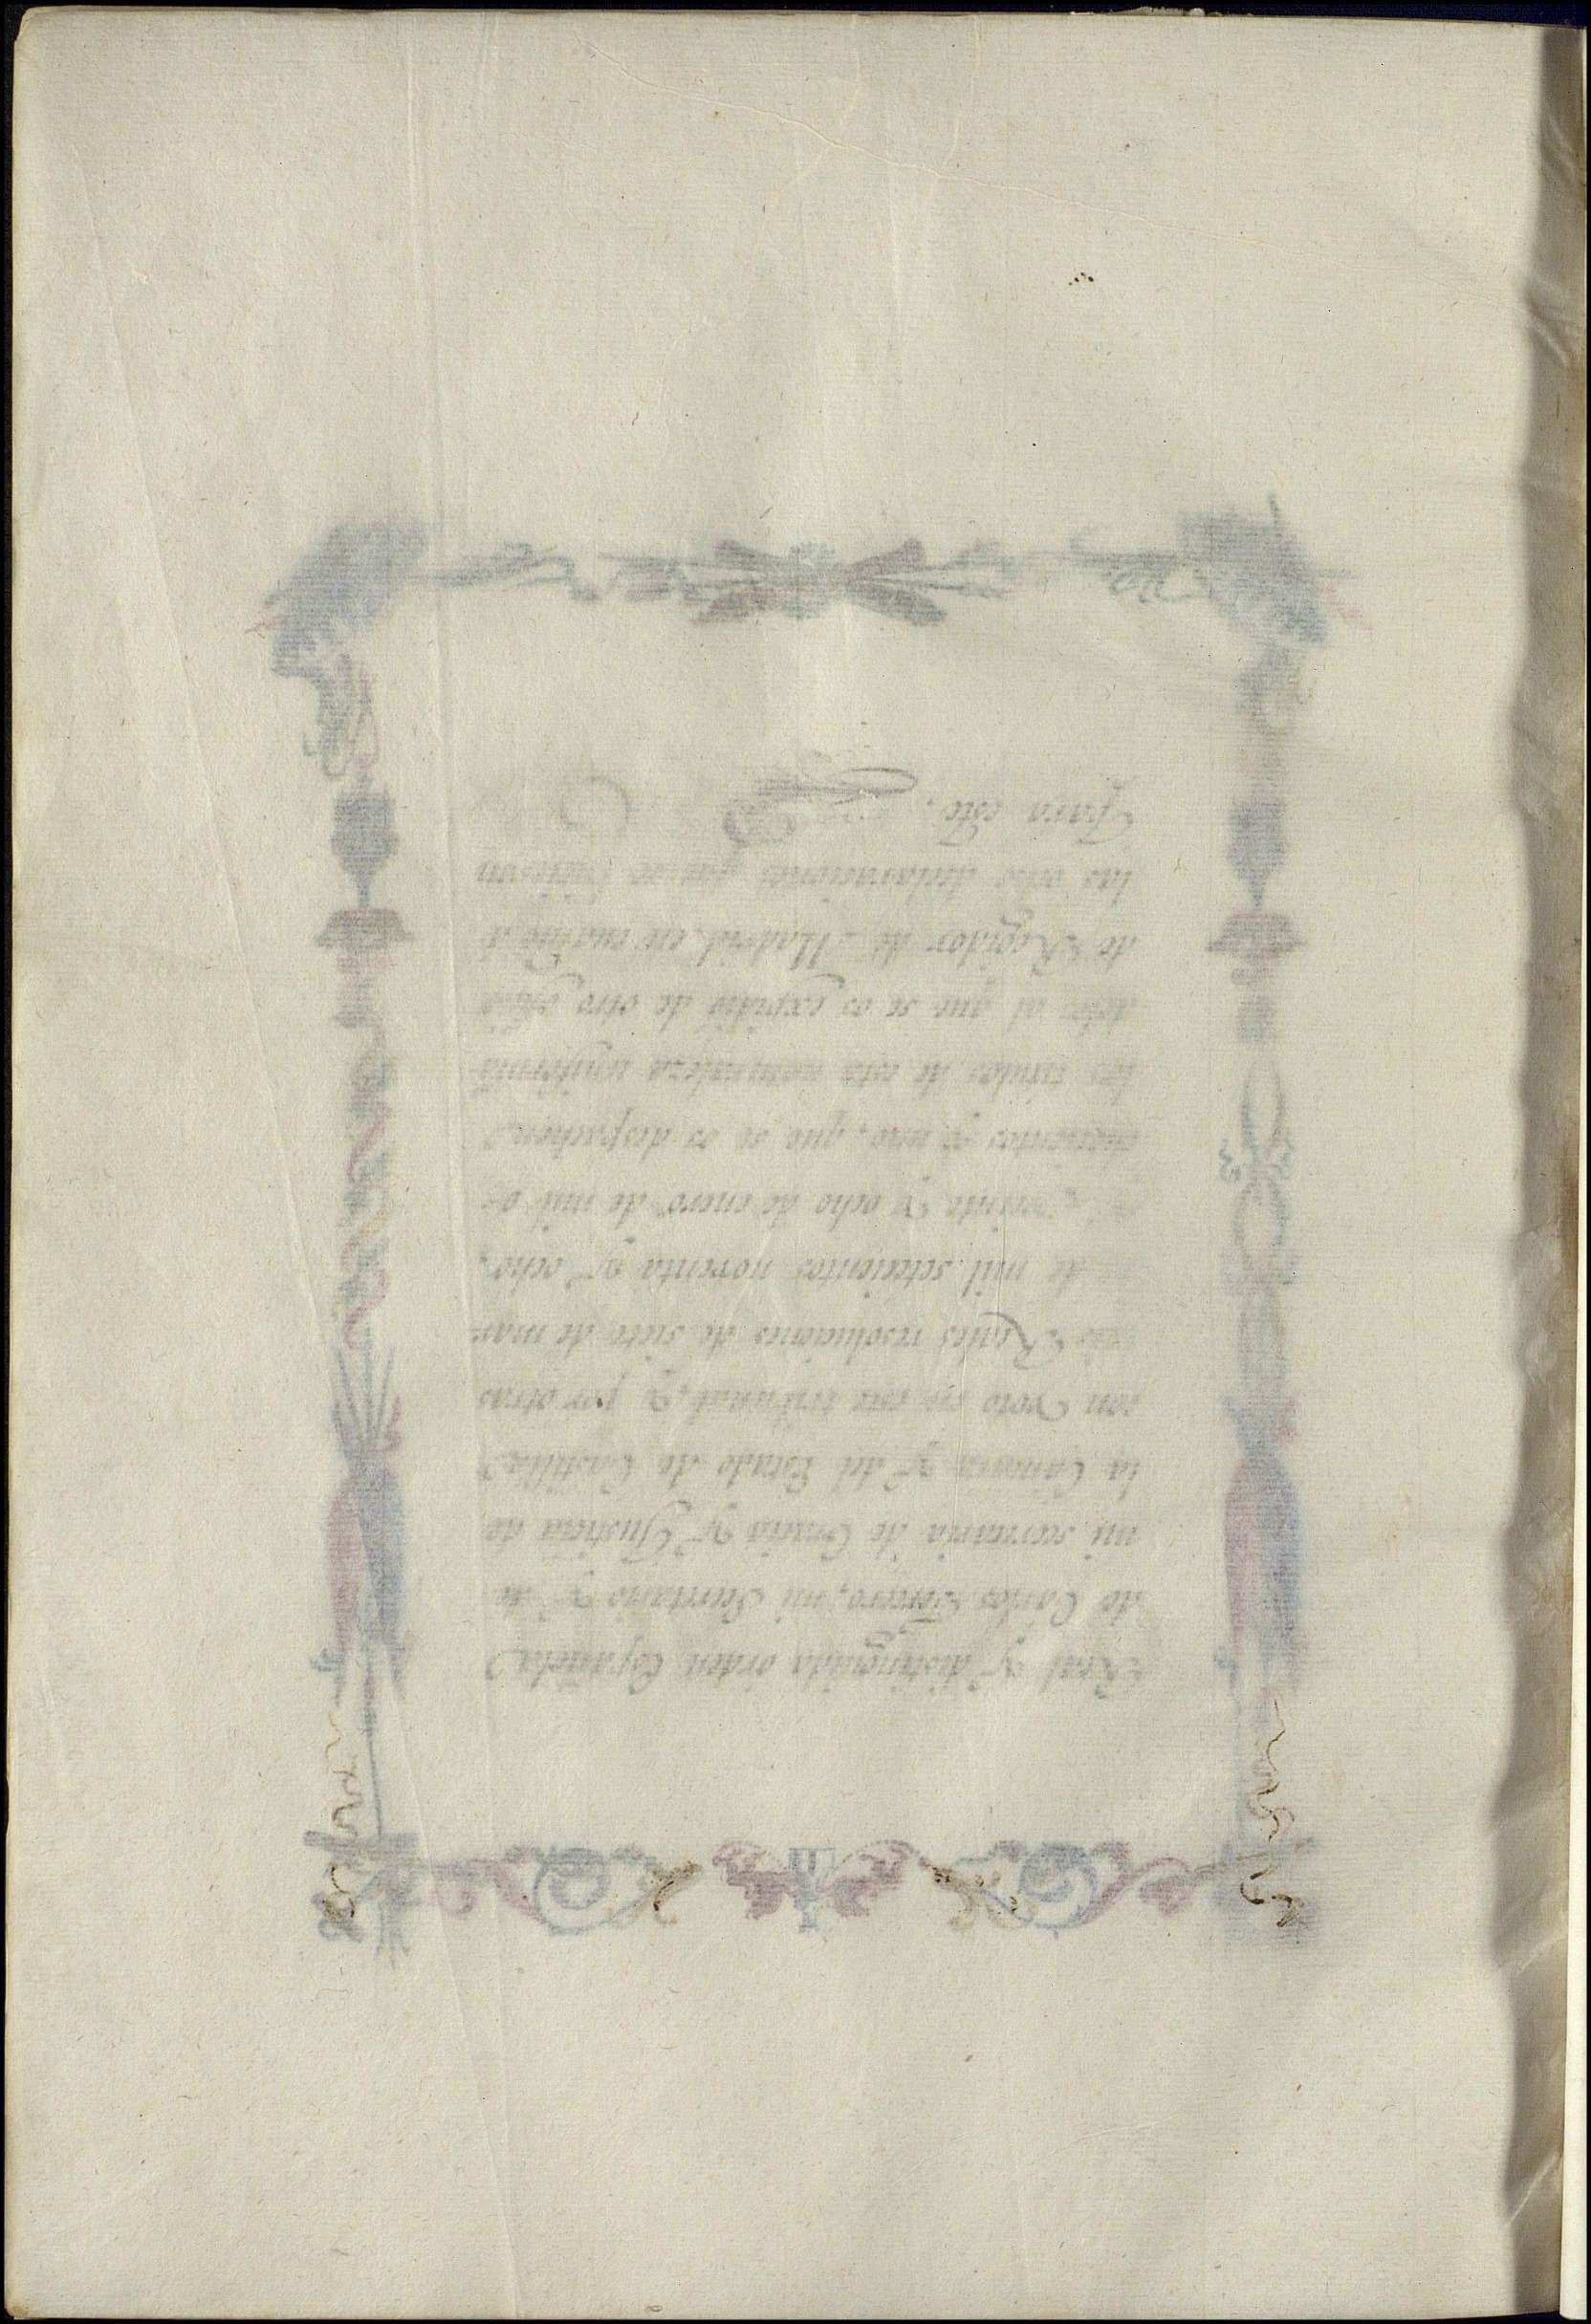 Real y distinguida orden Española
de Carlos Tercero, mi Secretario y de
mi secretaria de Gracia y Justicia de
la Camara y del Estado de Castilla
con voto en este tribunal, y por otras
Reales resoluciones de siete de mar-
de mil setecientos noventa y ocho,
y veinte y ocho de enero de mil o-
chocientos y uno, que se os despachen
los titulos de esta naturaleza uniforman-
dolos al que se os expidió de otro oficio
de Regidor de Madrid, en quanto á
las seis declaraciones que se hicieron
Para este.